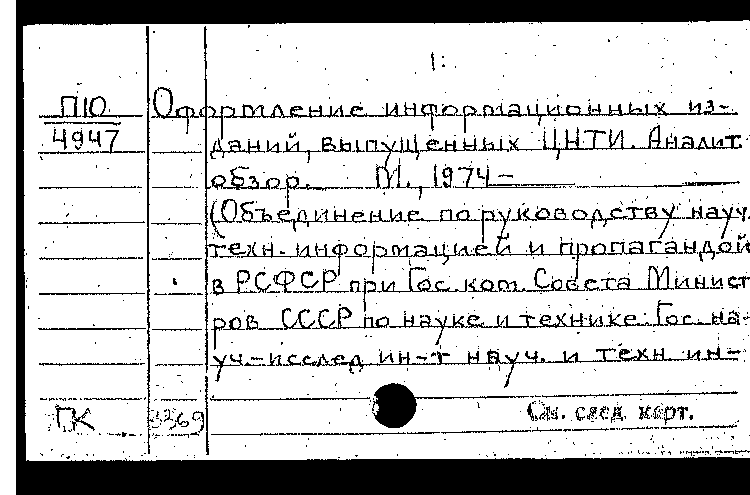 1:
П10 Оформление информационных из-
4947 даний, выпущенных ЦНТИ. Аналит.
обзор. М., 1974-
(Объединение по руководству науч.
техн. информацией и пропагандой
в РСФСР при Гос. ком. Совета Минист
ров СССР по науке и технике. Гос. на-
уч.-исслед ин-т науч. и техн. ин-
ГК 3269 См. след. карт.